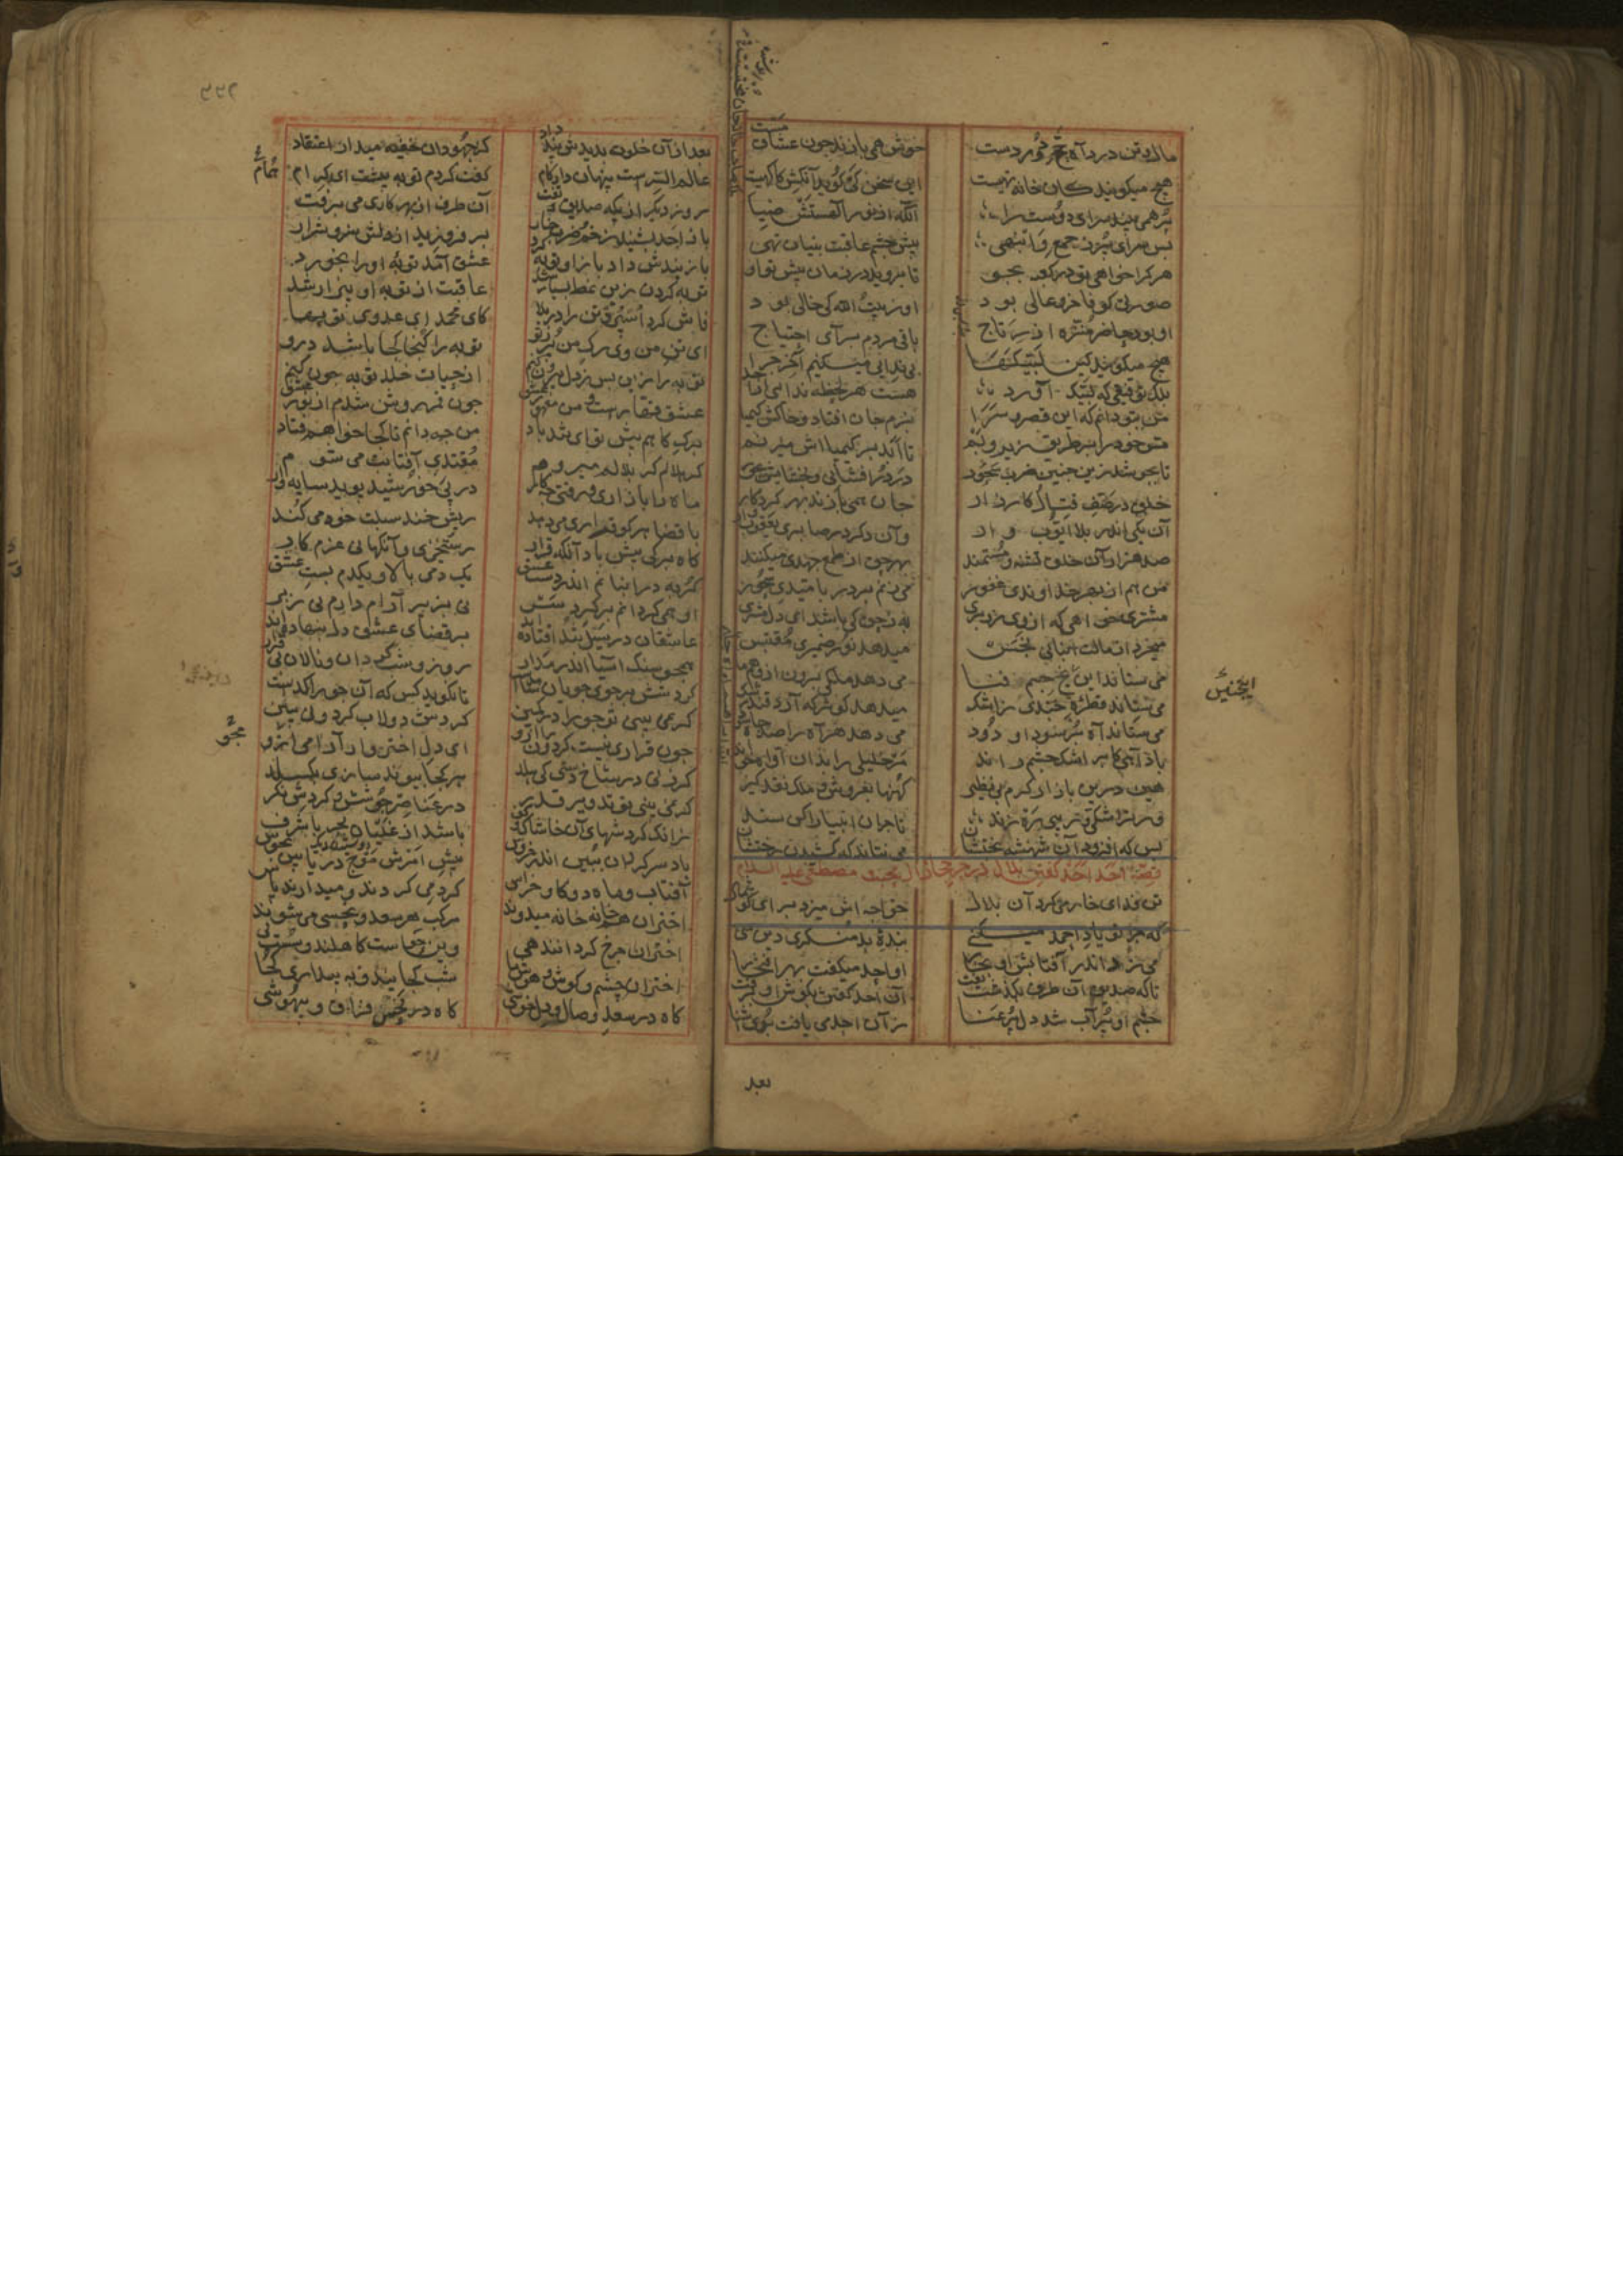 مال و تن در راه حج دوردست خوش همی بازند چون عشاق مست
هیچ میکویند کان خانه تهیست این سخن کی کوید آنکش آکهیست
پر همی بیند سرای دوست را آنکه از نور الهستش ضیا
بس سرای پر ز جمع و انبهی پیش چشم عاقبت بینان تهی
هر کرا خواهی تو در کعبه بجو تا بروید در زمان پیش تو او
صورتی کو فاخر و عالی بود او ز بیت الله کی خالی بود
او بود حاضر منزه از رتاج باقی مردم برای احتیاج
هیچ میکویند کین لبیکها بی ندایی میکنیم آخر چرا
بلک توفیقی که لبیک آورد هست هر لحظه ندایی از احد
من ببو دانم که این قصر و سرا بزم جان افتاد و خاکش کیمیا
مس خود را بر طریق زیر و بم تا ابد بر کیمیااش میزنم
تا بجوشد زین چنین ضرب سحور در در افشانی و بخشایش بحور
خلق در صف قتال و کارزار جان همی بازند بهر کردکار
آن یکی اندر بلا ایوب وار وآن دکر در صابری یعقوب وار
صد هزاران خلق تشنه و مستمند بهر حق از طمع جهدی میکنند
من هم از بهر خداوند غفور می زنم بر در بامیدش سحور
مشتری خواهی که از وی زر بری به ز حق کی باشد ای دل مشتری
میخرد از مالت انبانی نجس میدهد نور ضمیری مقتبس
می ستاند این یخ جسم فنا می دهد ملکی برون از وهم ما
می ستاند قطره چندی ز اشک میدهد کوثر که آرد قند رشک
می ستاند آه پر سودا و دود می دهد هر آه را صد جاه سود
باد آهی کابر اشک چشم راند مر خلیلی را بدان اواه خواند
هین درین بازار کرم بی نظیر کهنها بفروش و ملک نقد کیر
ور ترا شکی و ریبی ره زند تاجران انبیا را کن سند
بس که افزود آن شهنشه بختشان می نتاند که کشیدن رختشان
قصه احد احد کفتن بلال در حر حجاز از محبت مصطفی علیه السلام
تن فدای خار میکرد آن بلال خواجه اش میزد برای کوشمال
که چرا تو یاد احمد میکنی بنده بد منکر دین منی
می زد اندر آفتابش او بخار او احد میکفت بهر افتخار
تا که صدیق آن طرف بکذشت تفت آن احد کفتن بکوش او برفت
چشم او پر آب شد دل پر عنا زان احد می یافت بوی آشنا
بعد
اینجنین
بعد از آن خلوت بدیدش پند داد کز جهودان خفیه میدار اعتقاد
عالم السرست پنهان دار کام کفت کردم توبه پیشت ای همام
روز دیکر از پکه صدیق تفت آن طرف از بهر کاری می برفت
باز احد بشنید و ز خم ضرب خار بر فروزید از دلش سوز و شرار
باز پندش داد باز او توبه کرد عشق آمد توبه او را بخورد
توبه کردن زین نمط بسیار شد عاقبت از توبه او بیزار شد
فاش کرد اسپرد تن را در بلا کای محمد ای عدوی توبها
ای تن من وی رک من پر ز تو توبه را کنجا کجا باشد درو
توبه را زین پس ز دل بیرون کنم از حیات خلد توبه چون کنم
عشق قهارست و من مقهور عشق چون قمر روشن شدم از نور عشق
برک کاهم پیش تو ای تند باد من چه دانم تا کجا خواهم فتاد
کر هلالم کر بلالم میروم مقتدی آفتابت می شوم
ماه را با زاری و زفتی چه کار در پی خورشید پوید سایه وار
با قضا هر کو قراری می دهد ریش خند سبلت خود می کند
کاه برکی پیش باد آنکه قرار رستخیزی و آنکهانی عزم کار
کربه در انبانم اندر دست عشق یک دمی بالا و یکدم پست عشق
او همی کرداندم بر کرد سر نی بزیر آرام دارم نی زبر
عاشقان در سیل تند افتاده اند بر قضای عشق دل بنهاده اند
همچو سنک آسیا اندر مدار روز و شب کردان و نالان بی قرار
کردشش بر جوی جویان شاهدست تا نکوید کس که آن جو راکدست
کر نمی بینی تو جو را در کمین کردش دولاب کردونی ببین
چون قراری نیست کردون را ازو ای دل اختروار آرامی مجو
کر زنی در شاخ دستی کی هلد هر کجا پیوند سازی بکسلد
کر نمی بینی تو تدویر قدر در عناصر جوشش و کردش نکر
زانک کردشهای آن خاشاک و کف باشد از غلیان بحر با شرف
باد سرکردان ببین اندر خروش پیش امرش موج دریا بین بجوش
آفتاب و ماه دو کاو خراس کرد می کردند و میدارند پاس
اختران هم خانه خانه میدوند مرکب هر سعد و نحسی می شوند
اختران چرخ کر دورند هی وین حواست کاهلند و سست پی
اختران چشم و کوش و هوش ما شب کجایند و به بیداری کجا
کاه در سعد و وصال و دلخوشی کاه در نحس فراق و بیهوشی